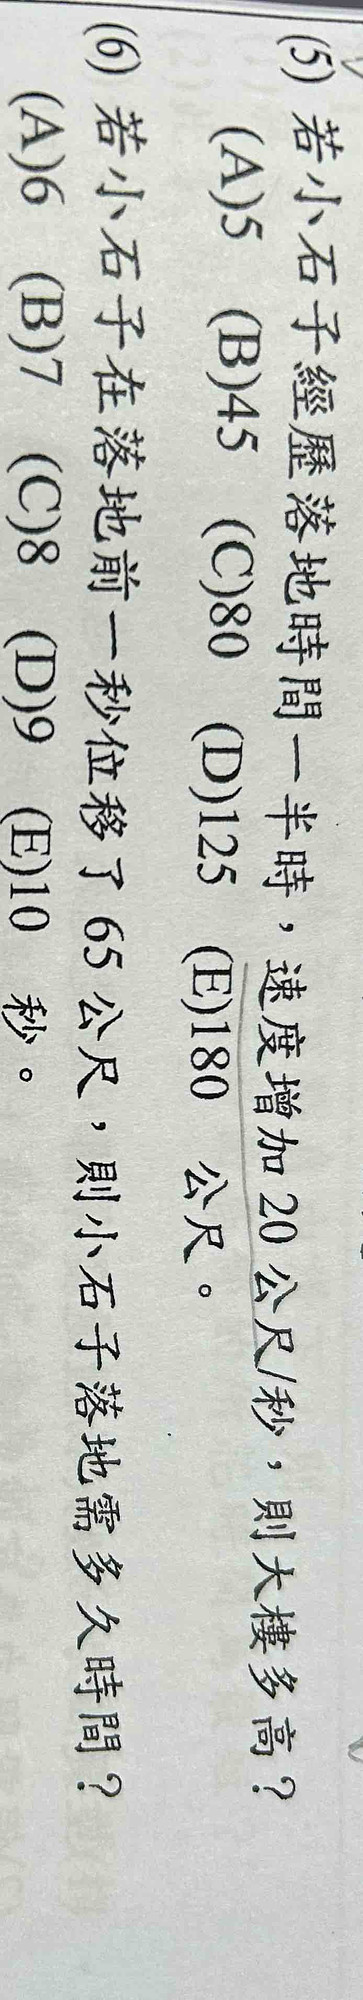 (5) 若小石子經歷落地時間一半時，速度增加 20 公尺/秒，則大樓多高？
(A)5 (B)45 (C)80 (D)125 (E)180 公尺。
(6) 若小石子在落地前一秒位移了 65 公尺，則小石子落地需多久時間？
(A)6 (B)7 (C)8 (D)9 (E)10 秒。